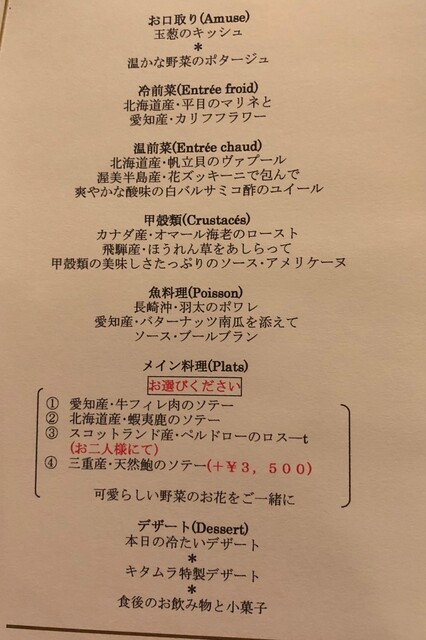 お口取り(Amuse)
玉葱のキッシュ
*
温かな野菜のポタージュ
冷前菜(Entrée froid)
北海道産・平目のマリネと
愛知産・カリフフラワー
温前菜(Entrée chaud)
北海道産・帆立貝のヴァプール
渥美半島産・花ズッキーニで包んで
爽やかな酸味の白バルサミコ酢のユイール
甲殻類(Crustacés)
カナダ産・オマール海老のロースト
飛騨産・ほうれん草をあしらって
甲殻類の美味しさたっぷりのソース・アメリケーヌ
魚料理(Poisson)
長崎沖・羽太のポワレ
愛知産・バターナッツ南瓜を添えて
ソース・ブールブラン
メイン料理(Plats)
お選びください
① 愛知産・牛フィレ肉のソテー
② 北海道産・蝦夷鹿のソテー
③ スコットランド産・ペルドローのロスーt
(お二人様にて)
④ 三重産・天然鮑のソテー(+¥3,500)
可愛らしい野菜のお花をご一緒に
デザート(Dessert)
本日の冷たいデザート
*
キタムラ特製デザート
*
食後のお飲み物と小菓子